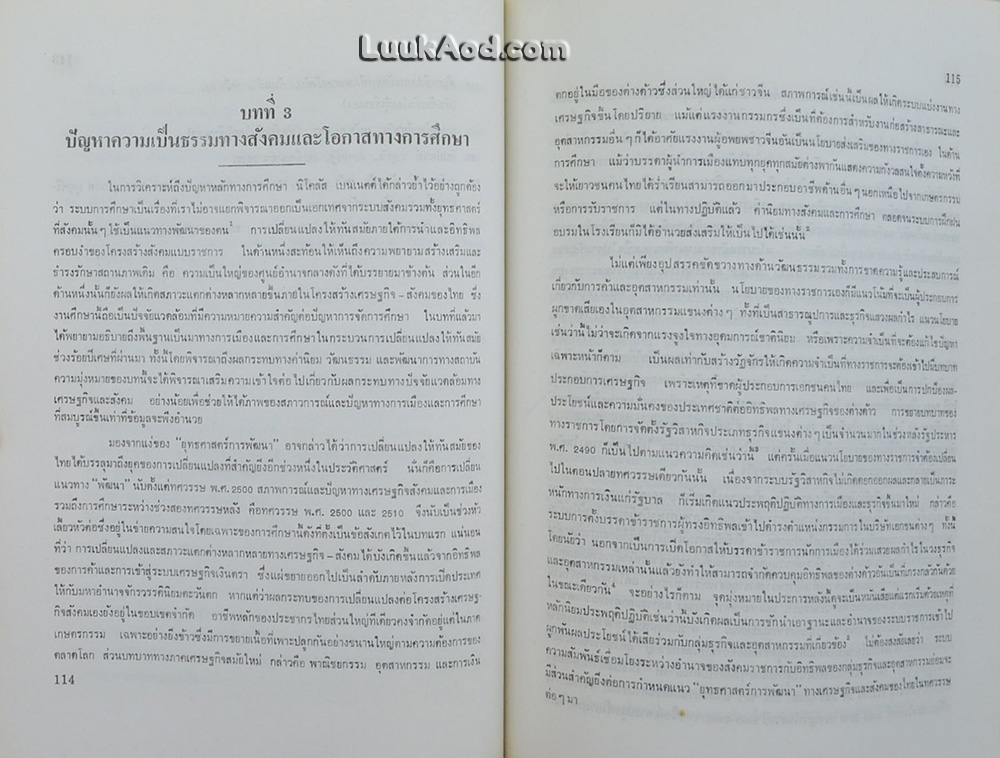 LuukAod.com
บทที่ 3
ปัญหาความเป็นธรรมทางสังคมและโอกาสทางการศึกษา
ในการวิเคราะห์ถึงปัญหาหลักทางการศึกษา นิโคลัส เบนเนตต์ได้กล่าวย้ำไว้อย่างถูกต้อง
ว่า ระบบการศึกษาเป็นเรื่องที่เราไม่อาจแยกพิจารณาออกเป็นเอกเทศจากระบบสังคมรวมทั้งยุทธศาสตร์
ที่สังคมนั้นๆ ใช้เป็นแนวทางพัฒนาของตน การเปลี่ยนแปลงให้ทันสมัยภายใต้การนำและอิทธิพล
ครอบงำของโครงสร้างสังคมแบบราชการ ในด้านหนึ่งสะท้อนให้เห็นถึงความพยายามสร้างเสริมและ
ธำรงรักษาสถานภาพเดิม คือ ความเป็นใหญ่ของศูนย์อำนาจกลางดังที่ได้บรรยายมาข้างต้น ส่วนในอีก
ด้านหนึ่งนั้นก็ยังผลให้เกิดสภาวะแตกต่างหลากหลายขึ้นภายในโครงสร้างเศรษฐกิจ-สังคมของไทย ซึ่ง
งานศึกษานี้ถือเป็นปัจจัยแวดล้อมที่มีความหมายความสำคัญต่อปัญหาการจัดการศึกษา ในบทที่แล้วมา
ได้พยายามอธิบายถึงพื้นฐานเป็นมาทางการเมืองและการศึกษาในกระบวนการเปลี่ยนแปลงให้ทันสมัย
ช่วงร้อยปีเศษที่ผ่านมา ทั้งนี้โดยพิจารณาถึงผลกระทบทางค่านิยม วัฒนธรรม และพัฒนาการทางสถาบัน
ความมุ่งหมายของบทนี้จะได้พิจารณาเสริมความเข้าใจต่อไปเกี่ยวกับผลกระทบทางปัจจัยแวดล้อมทาง
เศรษฐกิจและสังคม อย่างน้อยเพื่อช่วยให้ได้ภาพของสภาวการณ์และปัญหาทางการเมืองและการศึกษา
ที่สมบูรณ์ขึ้นเท่าที่ข้อมูลจะพึงอำนวย
มองจากแง่ของ "ยุทธศาสตร์การพัฒนา" อาจกล่าวได้ว่าการเปลี่ยนแปลงให้ทันสมัยของ
ไทยได้บรรลุมาถึงยุคของการเปลี่ยนแปลงที่สำคัญยิ่งอีกช่วงหนึ่งในประวัติศาสตร์ นั่นก็คือการเปลี่ยน
แนวทาง "พัฒนา" นับตั้งแต่ทศวรรษ พ.ศ. 2500 สภาพการณ์และปัญหาทางเศรษฐกิจสังคมและการเมือง
รวมถึงการศึกษาระหว่างช่วงสองทศวรรษหลัง คือทศวรรษ พ.ศ. 2500 และ 2510 จึงนับเป็นช่วงหัว
เลี้ยวหัวต่อซึ่งอยู่ในข่ายความสนใจโดยเฉพาะของการศึกษานี้ดังที่ตั้งเป็นข้อสังเกตไว้ในบทแรก แน่นอน
ที่ว่า การเปลี่ยนแปลงและสภาวะแตกต่างหลากหลายทางเศรษฐกิจ-สังคมได้บังเกิดขึ้นแล้วจากอิทธิพล
ของการค้าและการเข้าสู่ระบบเศรษฐกิจเงินตรา ซึ่งแผ่ขยายออกไปเป็นลำดับภายหลังการเปิดประเทศ
ให้กับมหาอำนาจจักรวรรดินิยมตะวันตก หากแต่ว่าผลกระทบของการเปลี่ยนแปลงต่อโครงสร้างเศรษฐ-
กิจสังคมเองยังอยู่ในขอบเขตจำกัด อาชีพหลักของประชากรไทยส่วนใหญ่ก็ยังคงจำกัดอยู่แต่ในภาค
เกษตรกรรม เฉพาะอย่างยิ่งข้าวซึ่งมีการขยายเนื้อที่เพาะปลูกกันอย่างขนานใหญ่ตามความต้องการของ
ตลาดโลก ส่วนบทบาททางภาคเศรษฐกิจสมัยใหม่ กล่าวคือ พาณิชยกรรม อุตสาหกรรม และการเงิน
114
115
ตกอยู่ในมือของต่างด้าวซึ่งส่วนใหญ่ได้แก่ชาวจีน สภาพการณ์เช่นนี้เป็นผลให้เกิดระบบแบ่งงานทาง
เศรษฐกิจขึ้นโดยปริยาย แม้แต่แรงงานกรรมกรซึ่งเป็นที่ต้องการสำหรับงานก่อสร้างสาธารณะและ
อุตสาหกรรมอื่นๆ ก็ได้อาศัยแรงงานผู้อพยพชาวจีนอันเป็นนโยบายส่งเสริมของทางราชการเอง ในด้าน
การศึกษา แม้ว่าบรรดาผู้นำการเมืองแทบทุกยุคทุกสมัยต่างพากันแสดงความกังวลสนใจตั้งความหวังที่
จะให้เยาวชนคนไทยได้ร่ำเรียนสามารถออกมาประกอบอาชีพด้านอื่นๆ นอกเหนือไปจากเกษตรกรรม
หรือการรับราชการ แต่ในทางปฏิบัติแล้ว ค่านิยมทางสังคมและการศึกษา ตลอดจนระบบการฝึกฝน
อบรมในโรงเรียนก็มิได้อำนวยส่งเสริมให้เป็นไปได้เช่นนั้น
ไม่แต่เพียงอุปสรรคขัดขวางทางด้านวัฒนธรรมรวมทั้งการขาดความรู้และประสบการณ์
เกี่ยวกับการค้าและอุตสาหกรรมเท่านั้น นโยบายของทางราชการเองก็มีแนวโน้มที่จะเป็นผู้ประกอบการ
ผูกขาดเสียเองในอุตสาหกรรมแขนงต่างๆ ทั้งที่เป็นสาธารณูปการและธุรกิจแสวงผลกำไร แนวนโยบาย
เช่นว่านี้ไม่ว่าจะเกิดจากแรงจูงใจทางอุดมการณ์ชาตินิยม หรือเพราะความจำเป็นที่จะต้องแก้ไขปัญหา
เฉพาะหน้าก็ตาม เป็นผลเท่ากับสร้างวัฏจักรให้เกิดความจำเป็นที่ทางราชการจะต้องเข้าไปมีบทบาท
ประกอบการเศรษฐกิจ เพราะเหตุที่ขาดผู้ประกอบการเอกชนคนไทย และเพื่อเป็นการปกป้องผล-
ประโยชน์และความมั่นคงของประเทศชาติต่ออิทธิพลทางเศรษฐกิจของต่างด้าว การขยายบทบาทของ
ทางราชการโดยการจัดตั้งรัฐวิสาหกิจประเภทธุรกิจแขนงต่างๆ เป็นจำนวนมากในช่วงหลังรัฐประหาร
พ.ศ. 2490 ก็เป็นไปตามแนวความคิดเช่นว่านี้ แต่ครั้นเมื่อแนวนโยบายของทางราชการจำต้องเปลี่ยน
ไปในตอนปลายทศวรรษเดียวกันนั้น เนื่องจากระบบรัฐวิสาหกิจไม่เกิดดอกออกผลและกลายเป็นภาระ
หนักทางการเงินแก่รัฐบาล ก็เริ่มเกิดแนวประพฤติปฏิบัติทางการเมืองและธุรกิจขึ้นมาใหม่ กล่าวคือ
ระบบการดึงบรรดาข้าราชการผู้ทรงอิทธิพลเข้าไปดำรงตำแหน่งกรรมการในบริษัทเอกชนต่างๆ ทั้งนี้
โดยนัยว่า นอกจากเป็นการเปิดโอกาสให้บรรดาข้าราชการนักการเมืองได้ร่วมเสวยผลกำไรในวงธุรกิจ
และอุตสาหกรรมเหล่านั้นแล้วยังทำให้สามารถจำกัดควบคุมอิทธิพลของต่างด้าวอันเป็นที่เกรงกลัวกันด้วย
ในขณะเดียวกัน จะอย่างไรก็ตาม จุดมุ่งหมายในประการหลังนี้ดูจะเป็นหมันเสียแต่แรกเริ่มด้วยเหตุที่
หลักนิยมประพฤติปฏิบัติเช่นว่านี้บังเกิดผลเป็นการชักนำเอาฐานะและอำนาจของระบบราชการเข้าไป
ผูกพันผลประโยชน์ได้เสียร่วมกับกลุ่มธุรกิจและอุตสาหกรรมที่เกี่ยวข้อง ไม่ต้องสงสัยเลยว่า ระบบ
ความสัมพันธ์เชื่อมโยงระหว่างอำนาจของสังคมราชการกับอิทธิพลของกลุ่มธุรกิจและอุตสาหกรรมย่อมจะ
มีส่วนสำคัญยิ่งต่อการกำหนดแนว "ยุทธศาสตร์การพัฒนา" ทางเศรษฐกิจและสังคมของไทยในทศวรรษ
ต่อๆ มา